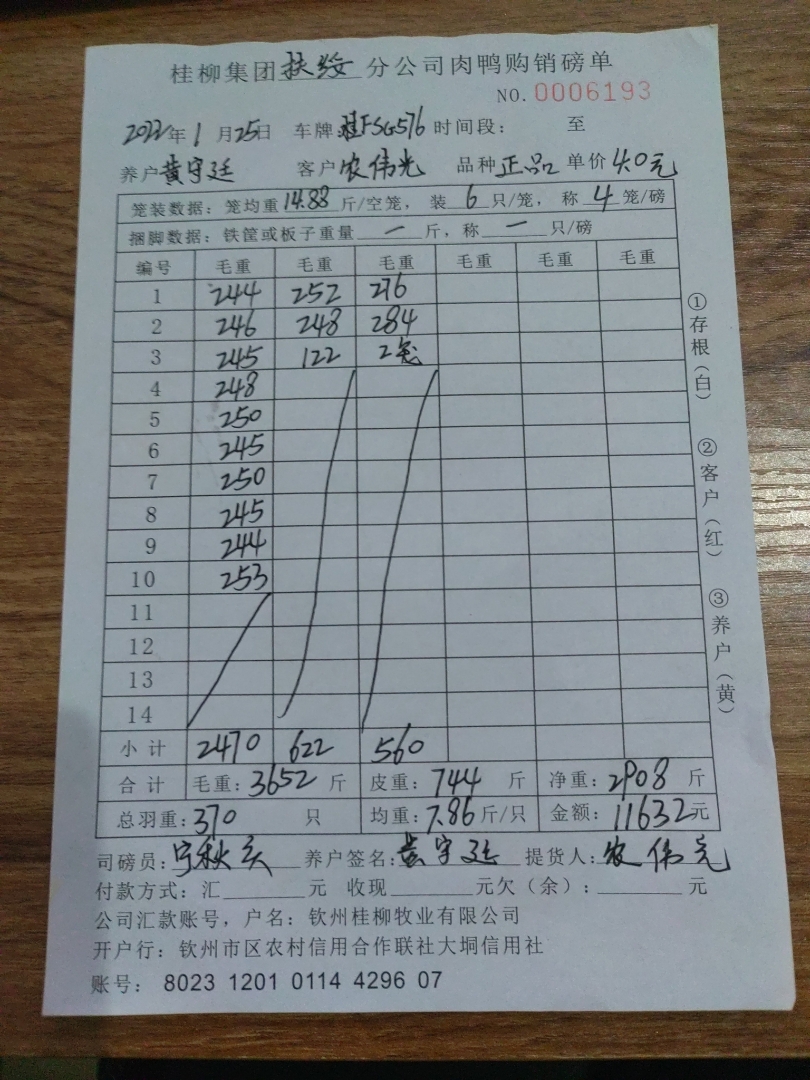 桂柳集团扶绥分公司肉鸭购销磅单
NO.0006193
2022年1月25日 车牌:桂FSG576 时间段: 至
养户黄守廷 客户农伟光 品种正品 单价4.0元
笼装数据:笼均重14.88斤/空笼,装6只/笼,称4笼/磅
捆脚数据:铁筐或板子重量一斤,称一只/磅
编号 毛重 毛重 毛重 毛重 毛重 毛重
1 244 252 276
2 246 248 284
3 245 122 2笼
4 248
5 250
6 245
7 250
8 245
9 244
10 253
11
12
13
14
小计 2470 622 560
合计 毛重:3652斤 皮重:744斤 净重:2908斤
总羽重:370只 均重:7.86斤/只 金额:11632元
司磅员:宁秋 养户签名:黄守廷 提货人:农伟光
付款方式:汇 元 收现 元欠(余): 元
公司汇款账号,户名:钦州桂柳牧业有限公司
开户行:钦州市区农村信用合作联社大垌信用社
账号: 8023 1201 0114 4296 07
①存根(白)
②客户(红)
③养户(黄)